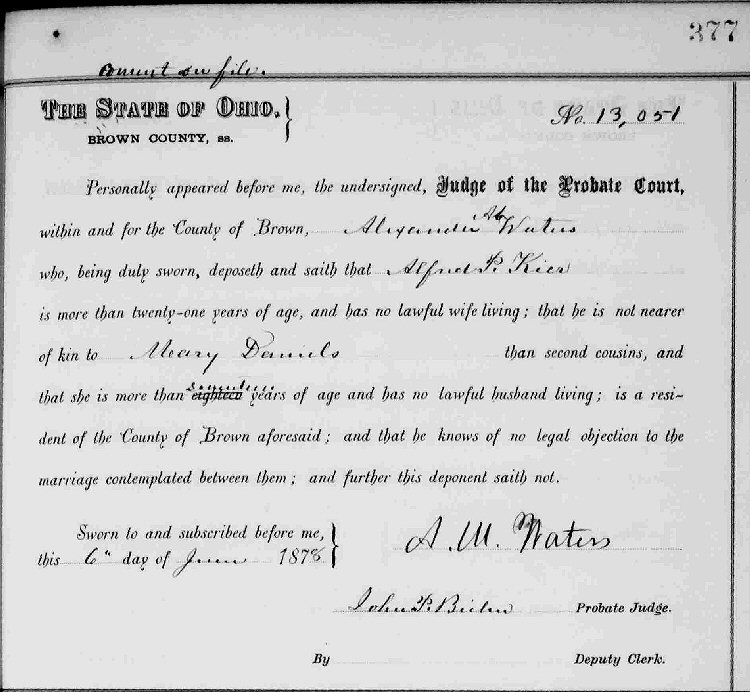 377
Consent on file.
THE STATE OF OHIO.
BROWN COUNTY, ss.
No. 13,051
Personally appeared before me, the undersigned, Judge of the Probate Court,
within and for the County of Brown, Alexander M Waters
who, being duly sworn, deposeth and saith that Alfred P. Kier
is more than twenty-one years of age, and has no lawful wife living; that he is not nearer
of kin to Meary Daniels than second cousins, and
that she is more than eighteen seventeen years of age and has no lawful husband living; is a resi-
dent of the County of Brown aforesaid; and that he knows of no legal objection to the
marriage contemplated between them; and further this deponent saith not.
Sworn to and subscribed before me,
this 6" day of June 1878
A. M. Waters
John P. Probate Judge.
By Deputy Clerk.